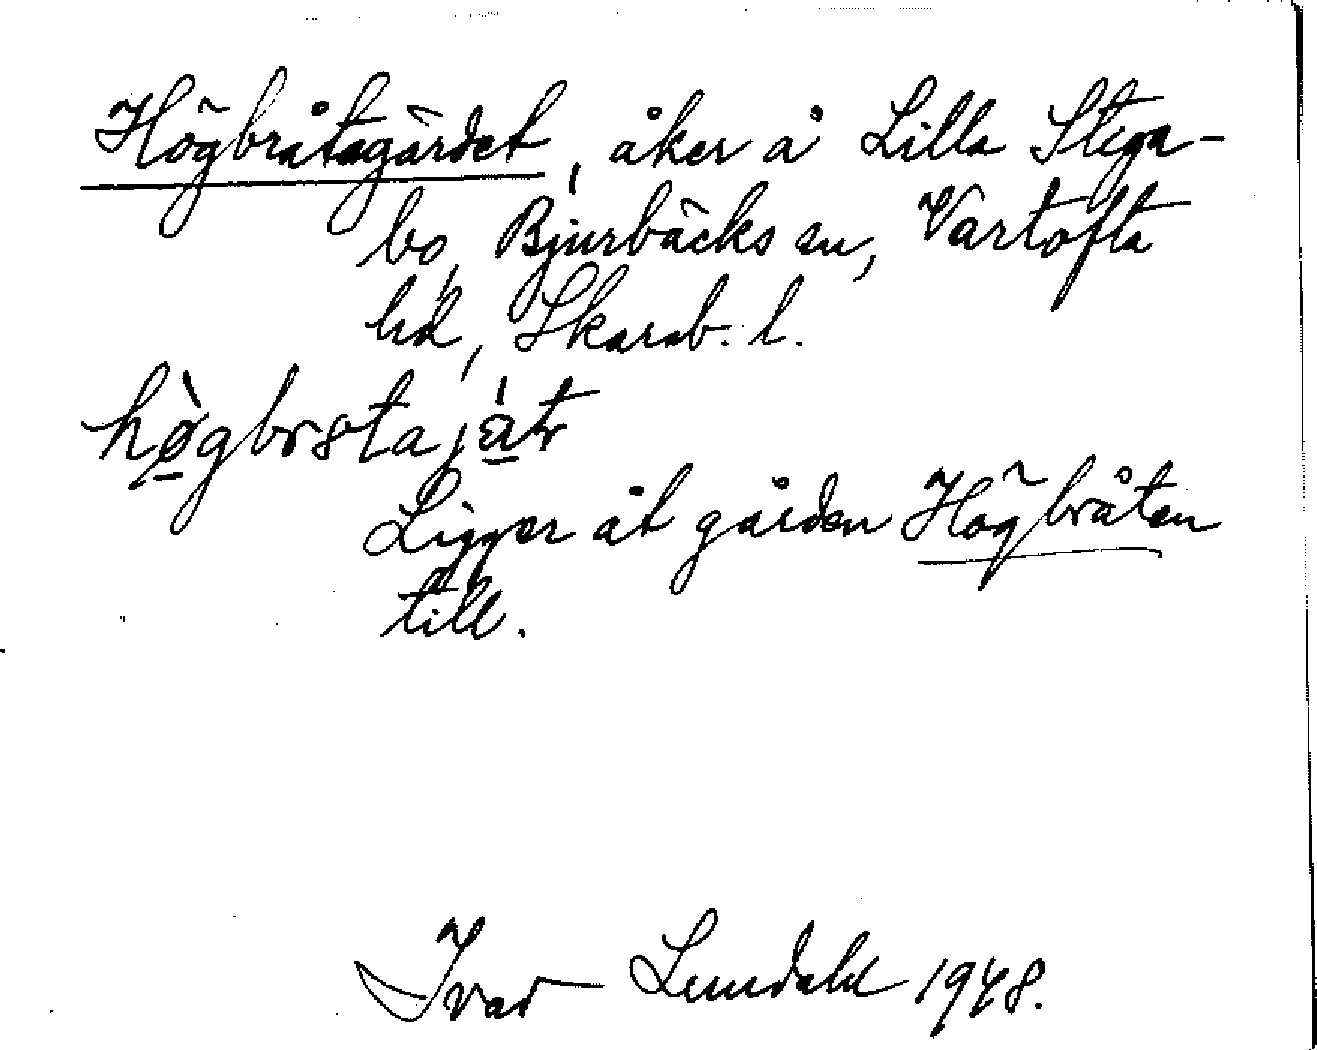 Högbråtagärdet, åker å Lilla Stega-
bo, Bjurbäcks sn, Vartofta
hd, Skarab. l.
Ligger åt gården Högbråten
till.
Ivar Lundahl 1948.